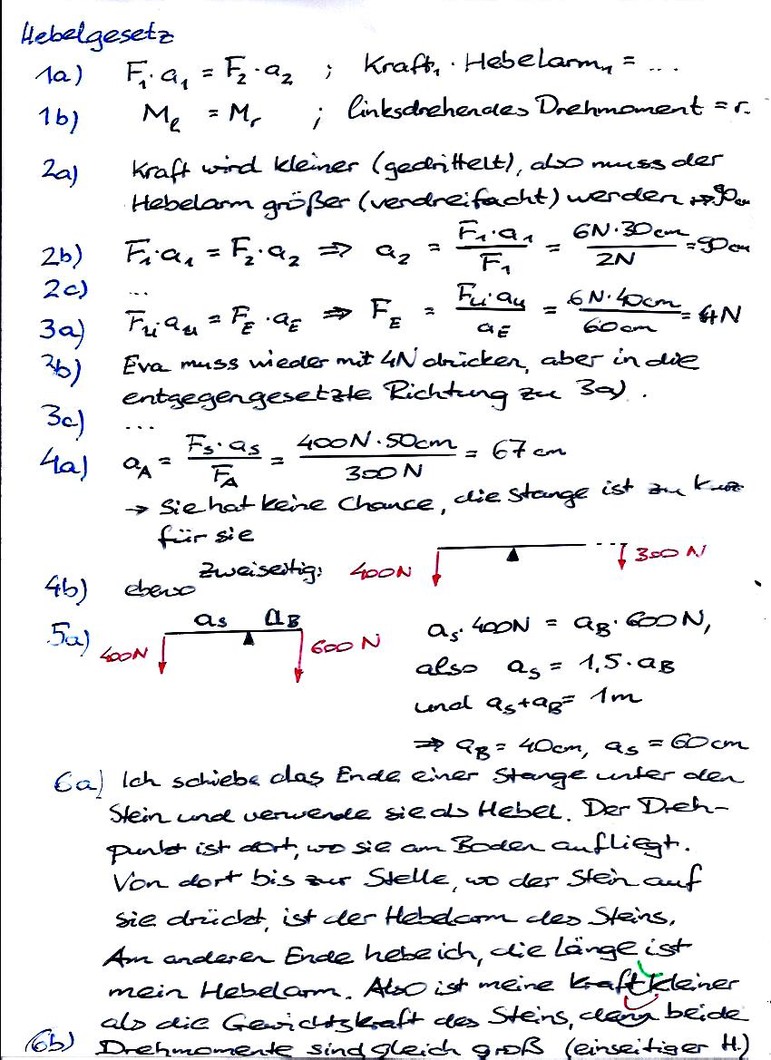 Hebelgesetz
1a) F₁·a₁ = F₂·a₂ ; Kraft₁ · Hebelarm₁ = ...
1b) Mₗ = Mᵣ ; linksdrehendes Drehmoment = r.
2a) Kraft wird kleiner (gedrittelt), also muss der
Hebelarm größer (verdreifacht) werden → 90cm
2b) F₁·a₁ = F₂·a₂ ⇒ a₂ = F₁·a₁ / F₁ = 6N·30cm / 2N = 90cm
2c) ...
3a) Fᵤ·aᵤ = F_E·a_E ⇒ F_E = Fᵤ·aᵤ / a_E = 6N·40cm / 60cm = 4N
3b) Eva muss wieder mit 4N drücken, aber in die
entgegengesetzte Richtung zu 3a).
3c) ...
4a) a_A = F_S·a_S / F_A = 400N·50cm / 300N = 67cm
→ Sie hat keine Chance, die Stange ist zu kurz
für sie
4b) ebenso zweiseitig: 400N 300N
5a) 400N a_S a_B 600N
a_S·400N = a_B·600N,
also a_S = 1,5·a_B
und a_S+a_B = 1m
⇒ a_B = 40cm, a_S = 60cm
6a) Ich schiebe das Ende einer Stange unter den
Stein und verwende sie als Hebel. Der Dreh-
punkt ist dort, wo sie am Boden aufliegt.
Von dort bis zur Stelle, wo der Stein auf
sie drückt, ist der Hebelarm des Steins.
Am anderen Ende hebe ich, die Länge ist
mein Hebelarm. Also ist meine Kraft kleiner
als die Gewichtskraft des Steins, denn beide
6b) Drehmomente sind gleich groß (einseitiger H.)